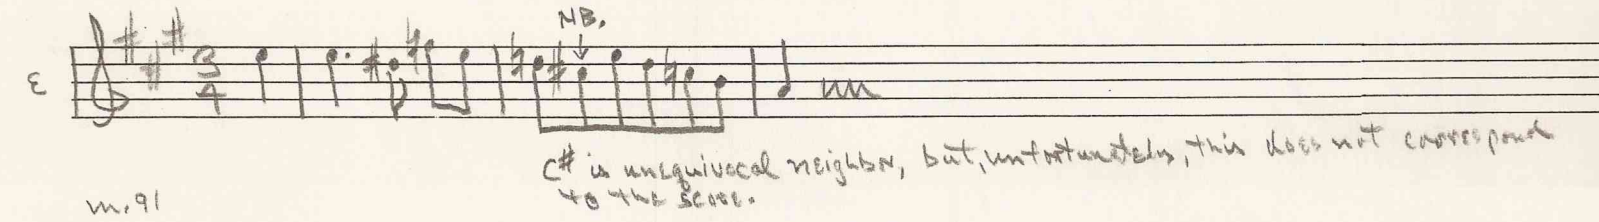 NB.
ε
3
4
C# is unequivocal neighbor, but, unfortunately, this does not correspond
to the score.
m.91